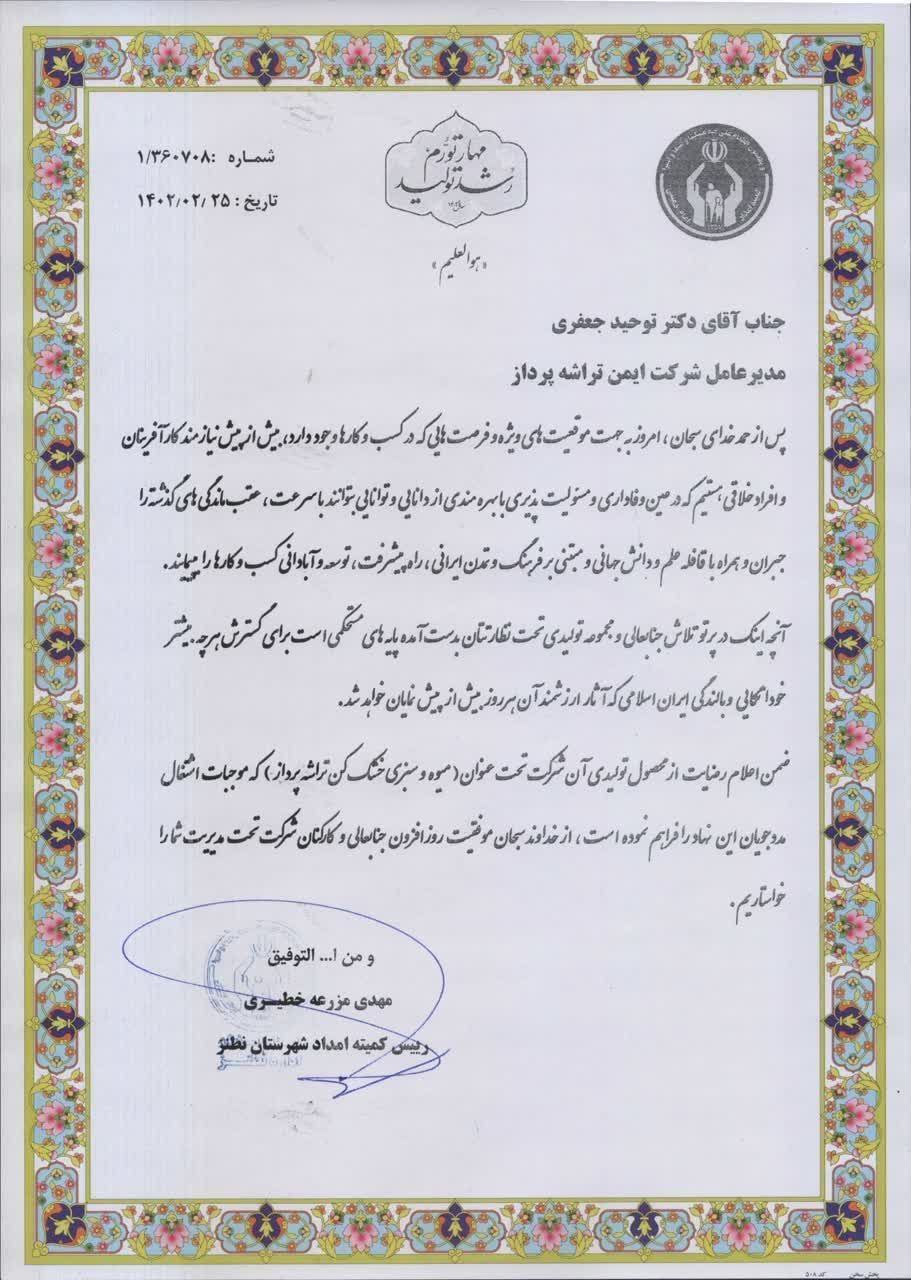 شماره :۱/۳۶۰۷۰۸
تاریخ : ۱۴۰۲/۰۲/۲۵
مهار تورم
رشد تولید
«هوالعلیم»
جناب آقای دکتر توحید جعفری
مدیرعامل شرکت ایمن تراشه پرداز
پس از حمد خدای سبحان ، امروز به جهت موقعیت های ویژه و فرصت هایی که در کسب و کارها وجود دارد، بیش از پیش نیازمند کارآفرینان
و افراد خلاقی هستیم که در عین وفاداری و مسئولیت پذیری با بهره مندی از دانایی و توانایی بتوانند با سرعت ، عقب ماندگی های گذشته را
جبران و همراه با قافله علم و دانش جهانی و مبتنی بر فرهنگ و تمدن ایرانی ، راه پیشرفت، توسعه و آبادانی کسب و کارها را بپیمایند .
آنچه اینک در پرتو تلاش جنابعالی و مجموعه تولیدی تحت نظارتتان بدست آمده پایه های مستحکمی است برای گسترش هرچه بیشتر
خوداتکایی و بالندگی ایران اسلامی که آثار ارزشمند آن هر روز بیش از پیش نمایان خواهد شد.
ضمن اعلام رضایت از محصول تولیدی آن شرکت تحت عنوان ( میوه و سبزی خشک کن تراشه پرداز ) که موجبات اشتغال
مددجویان این نهاد را فراهم نموده است ، از خداوند سبحان موفقیت روز افزون جنابعالی و کارکنان شرکت تحت مدیریت شما را
خواستاریم .
و من ا... التوفیق
مهدی مزرعه خطیری
رییس کمیته امداد شهرستان نطنز
پخش سخن کد ۵۰۸